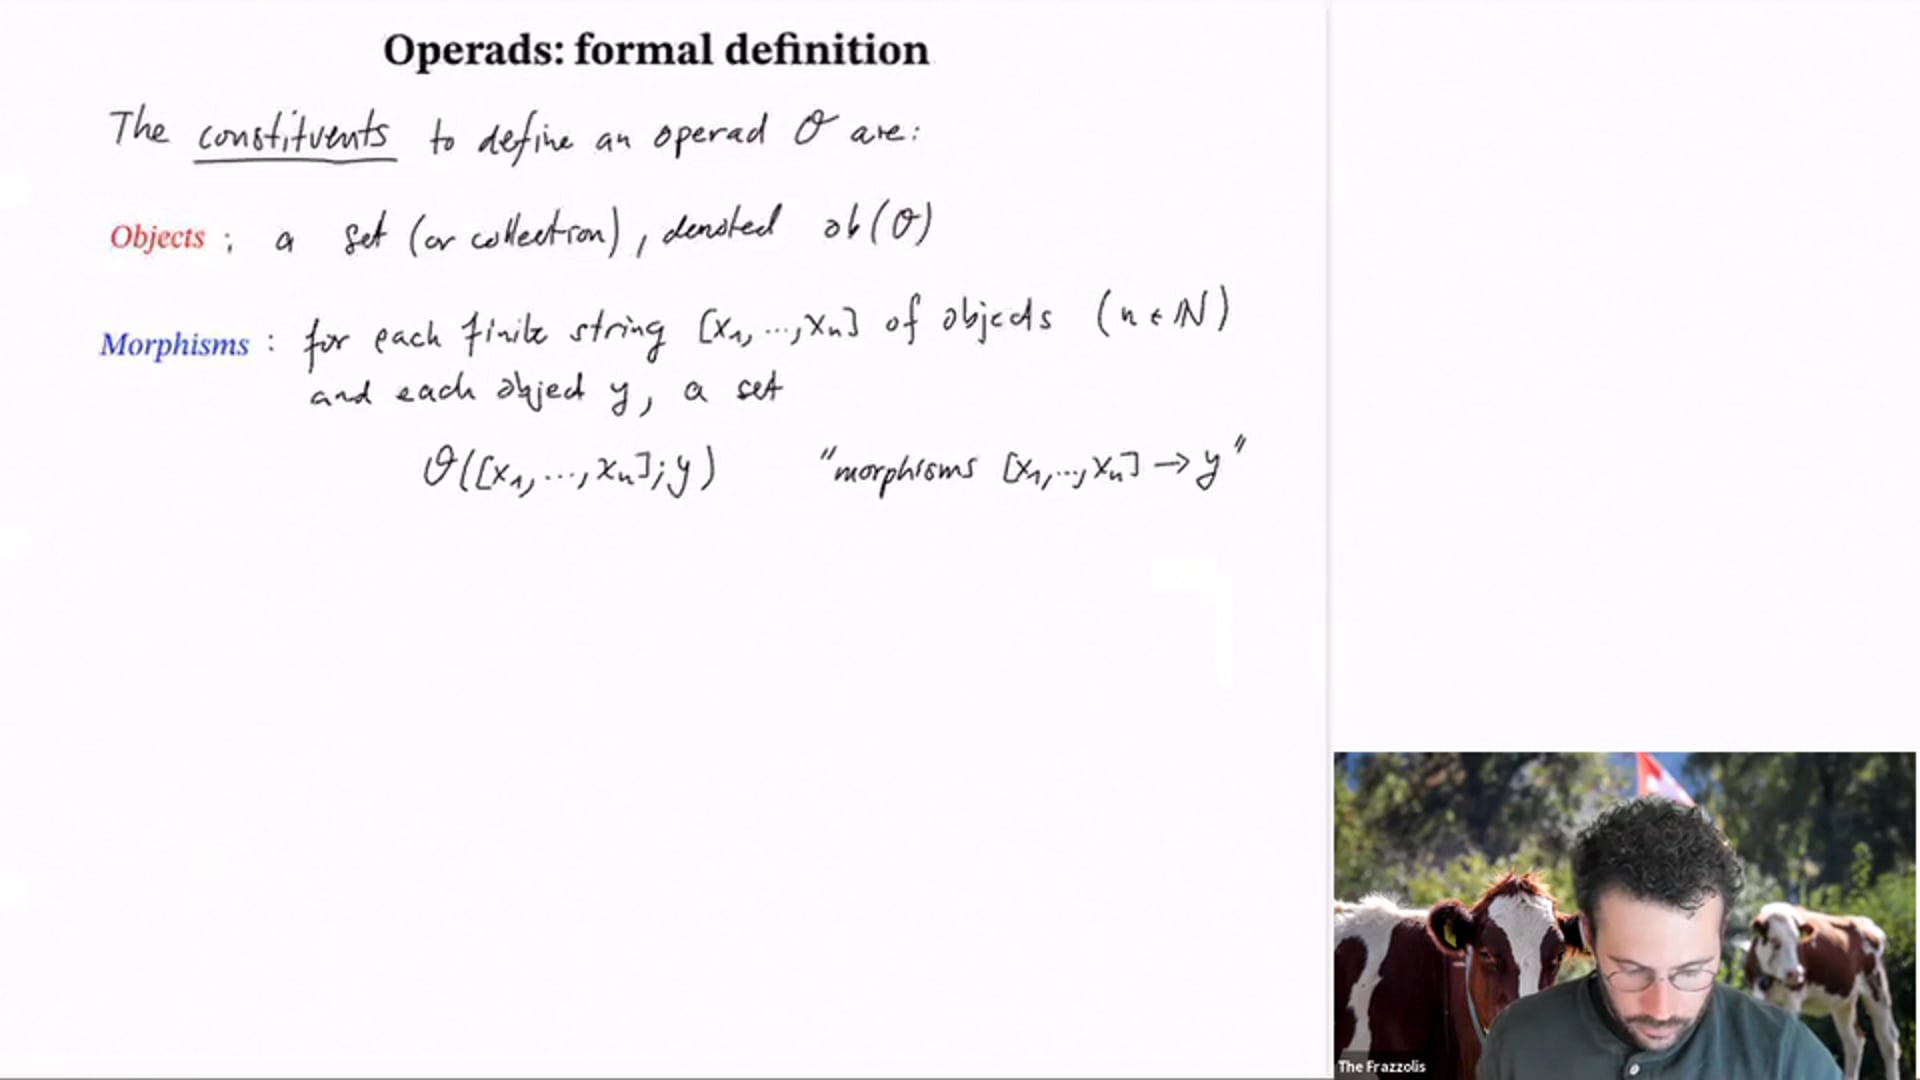 Operads: formal definition
The constituents to define an operad O are:
Objects : a set (or collection), denoted ob(O)
Morphisms : for each finite string [x₁, ..., xₙ] of objects (n ∈ ℕ)
and each object y, a set
O([x₁, ..., xₙ]; y) "morphisms [x₁, ..., xₙ] → y"
The Frazzolis